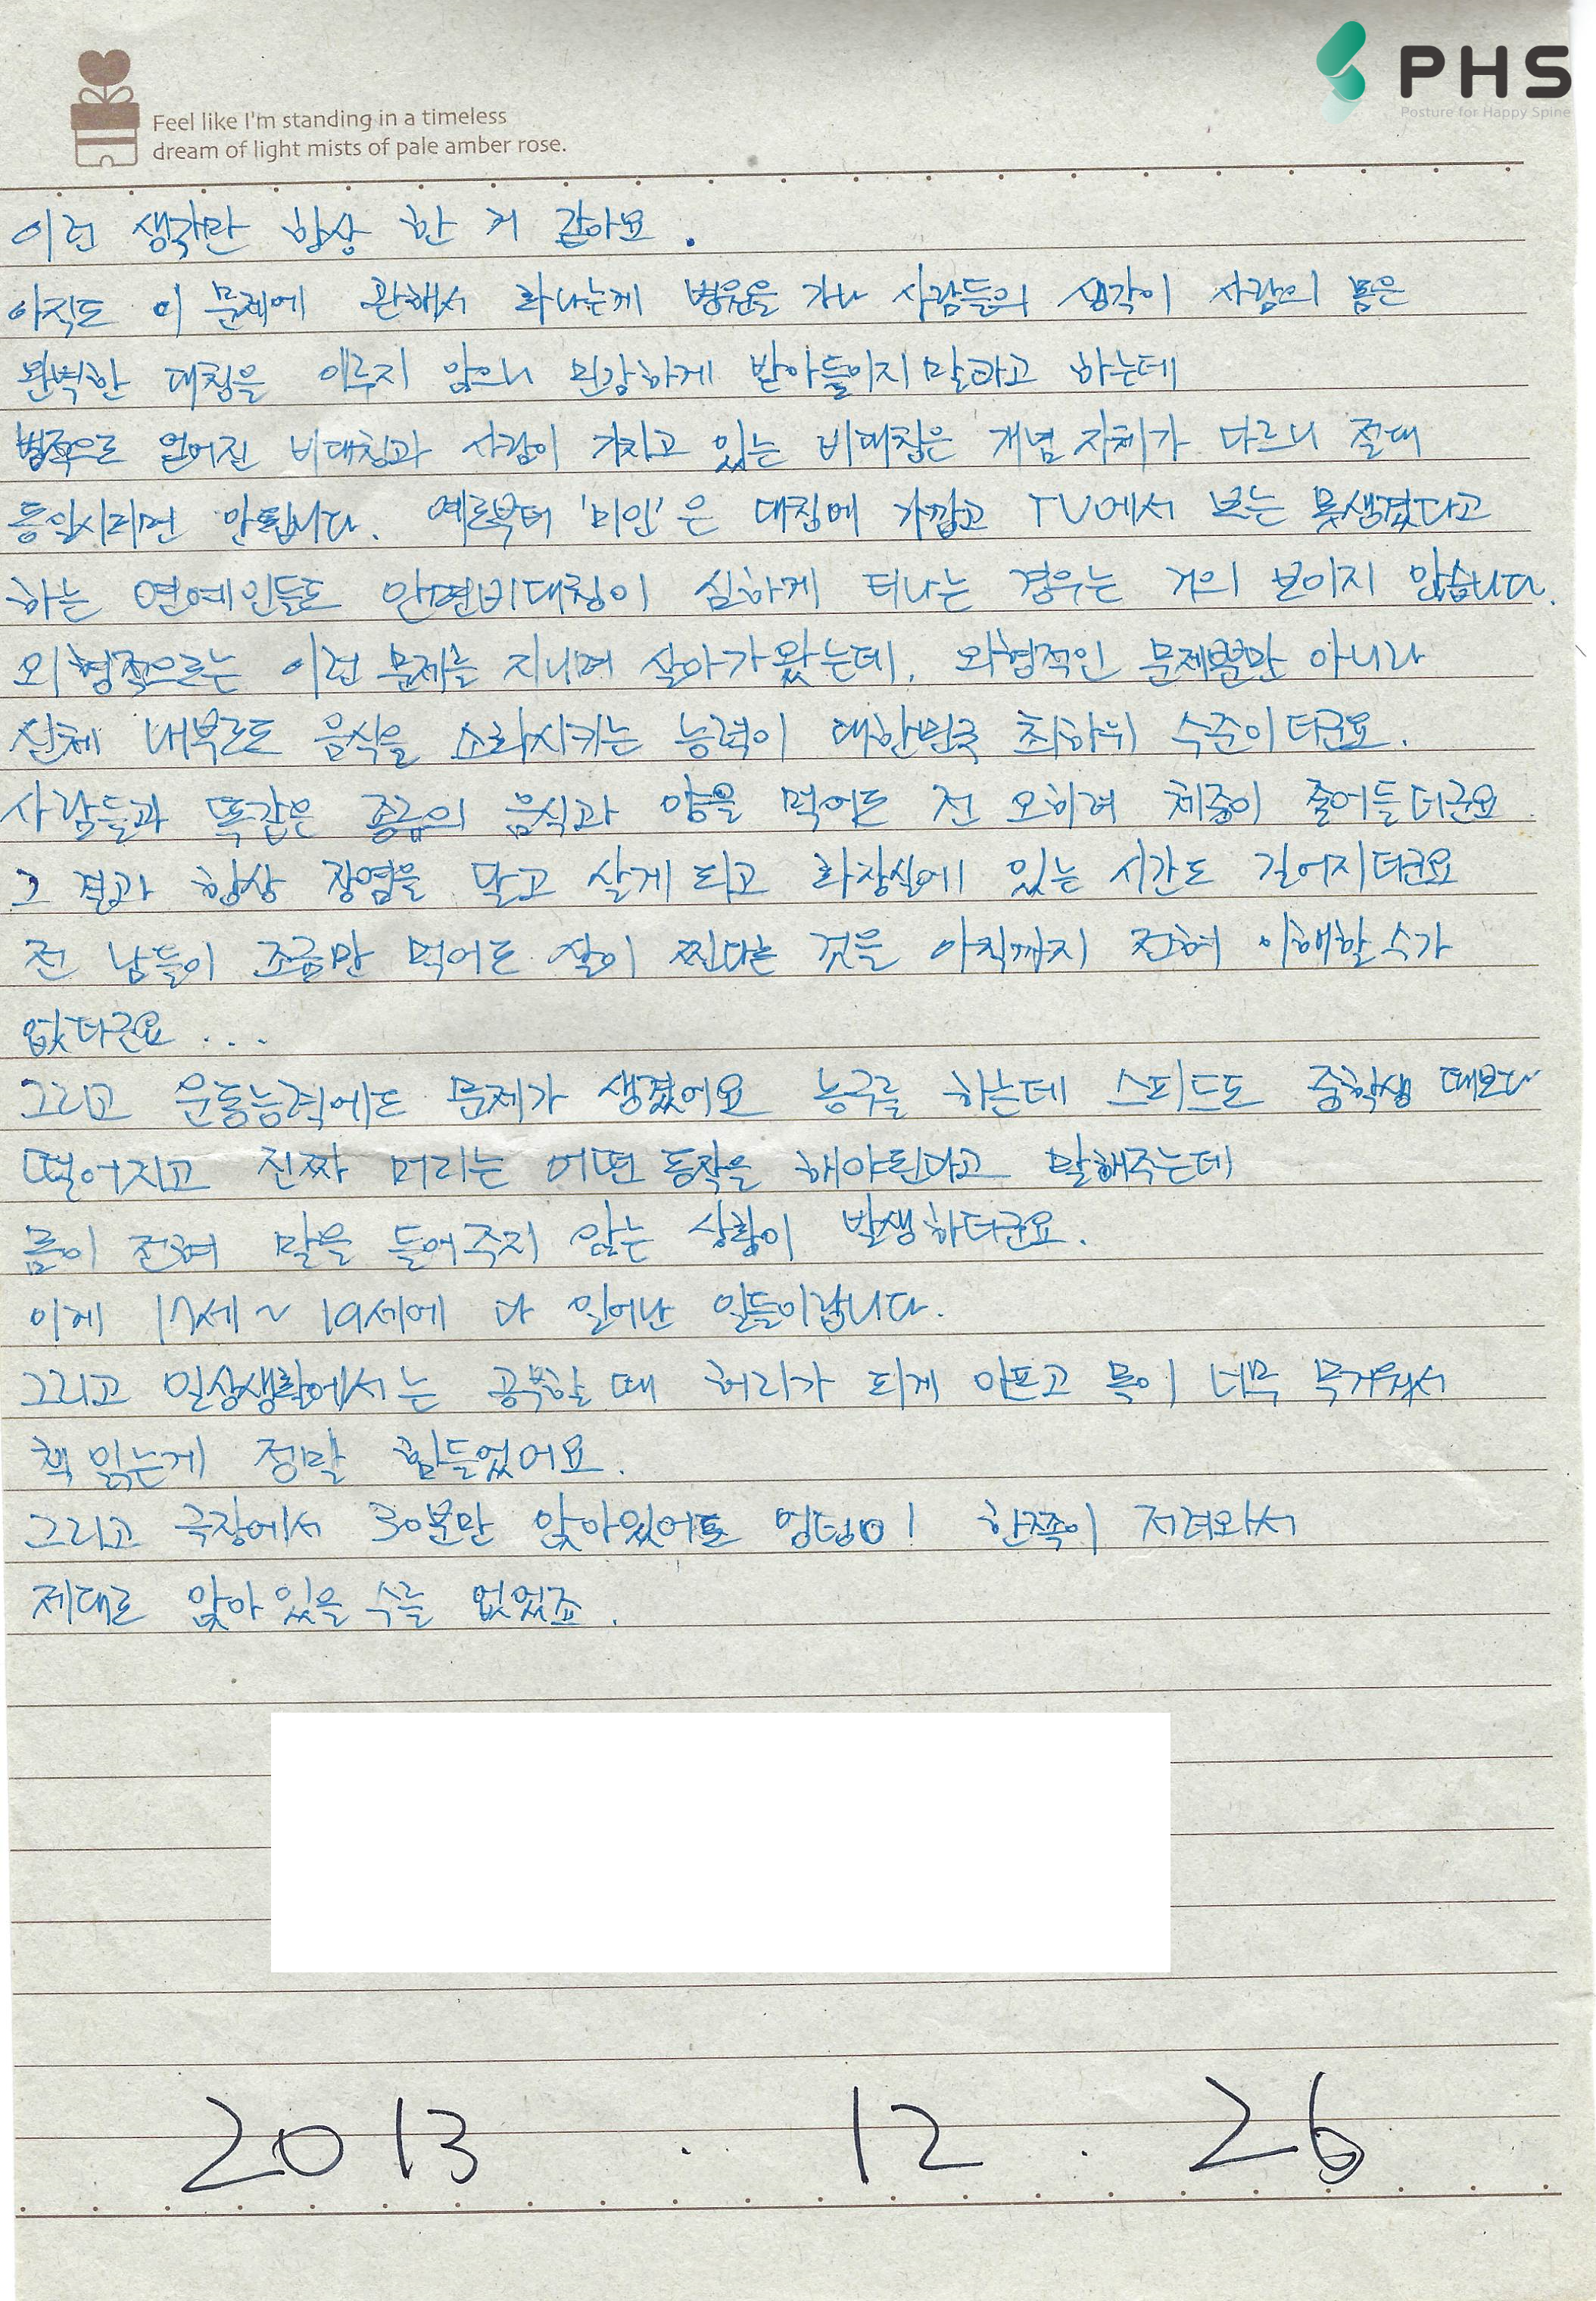 PHS
Posture for Happy Spine
Feel like I'm standing in a timeless
dream of light mists of pale amber rose.
이런 생각만 항상 한 거 같아요.
아직도 이 문제에 관해서 화나는게 병원을 가나 사람들의 생각이 사람의 몸은
완벽한 대칭을 이루지 않으니 민감하게 받아들이지 말라고 하는데
병적으로 얻어진 비대칭과 사람이 가지고 있는 비대칭은 개념 자체가 다르니 절대
동일시되면 안됩니다. 예로부터 '미인'은 대칭에 가깝고 TV에서 보는 못생겼다고
하는 연예인들도 안면비대칭이 심하게 티나는 경우는 거의 보이지 않습니다.
외형적으로는 이런 문제를 지니며 살아가왔는데, 외형적인 문제뿐만 아니라
신체 내부로도 음식을 소화시키는 능력이 대한민국 최하위 수준이더군요.
사람들과 똑같은 종류의 음식과 양을 먹어도 전 오히려 체중이 줄어들더군요
그 결과 항상 장염을 달고 살게 되고 화장실에 있는 시간도 길어지더군요
전 남들이 조금만 먹어도 살이 찐다는 것을 아직까지 전혀 이해할 수가
없더군요 ...
그리고 운동능력에도 문제가 생겼어요 농구를 하는데 스피드도 중학생 때보다
떨어지고 진짜 머리는 어떤 동작을 해야된다고 말해주는데
몸이 전혀 말을 들어주지 않는 상황이 발생하더군요.
이게 17세 ~ 19세에 다 일어난 일들이랍니다.
그리고 일상생활에서는 공부할 때 허리가 되게 아프고 목이 너무 무거워서
책 읽는게 정말 힘들었어요.
그리고 극장에서 30분만 앉아있어도 엉덩이 한쪽이 저려와서
제대로 앉아 있을 수를 없었죠.
2013 . 12 . 26